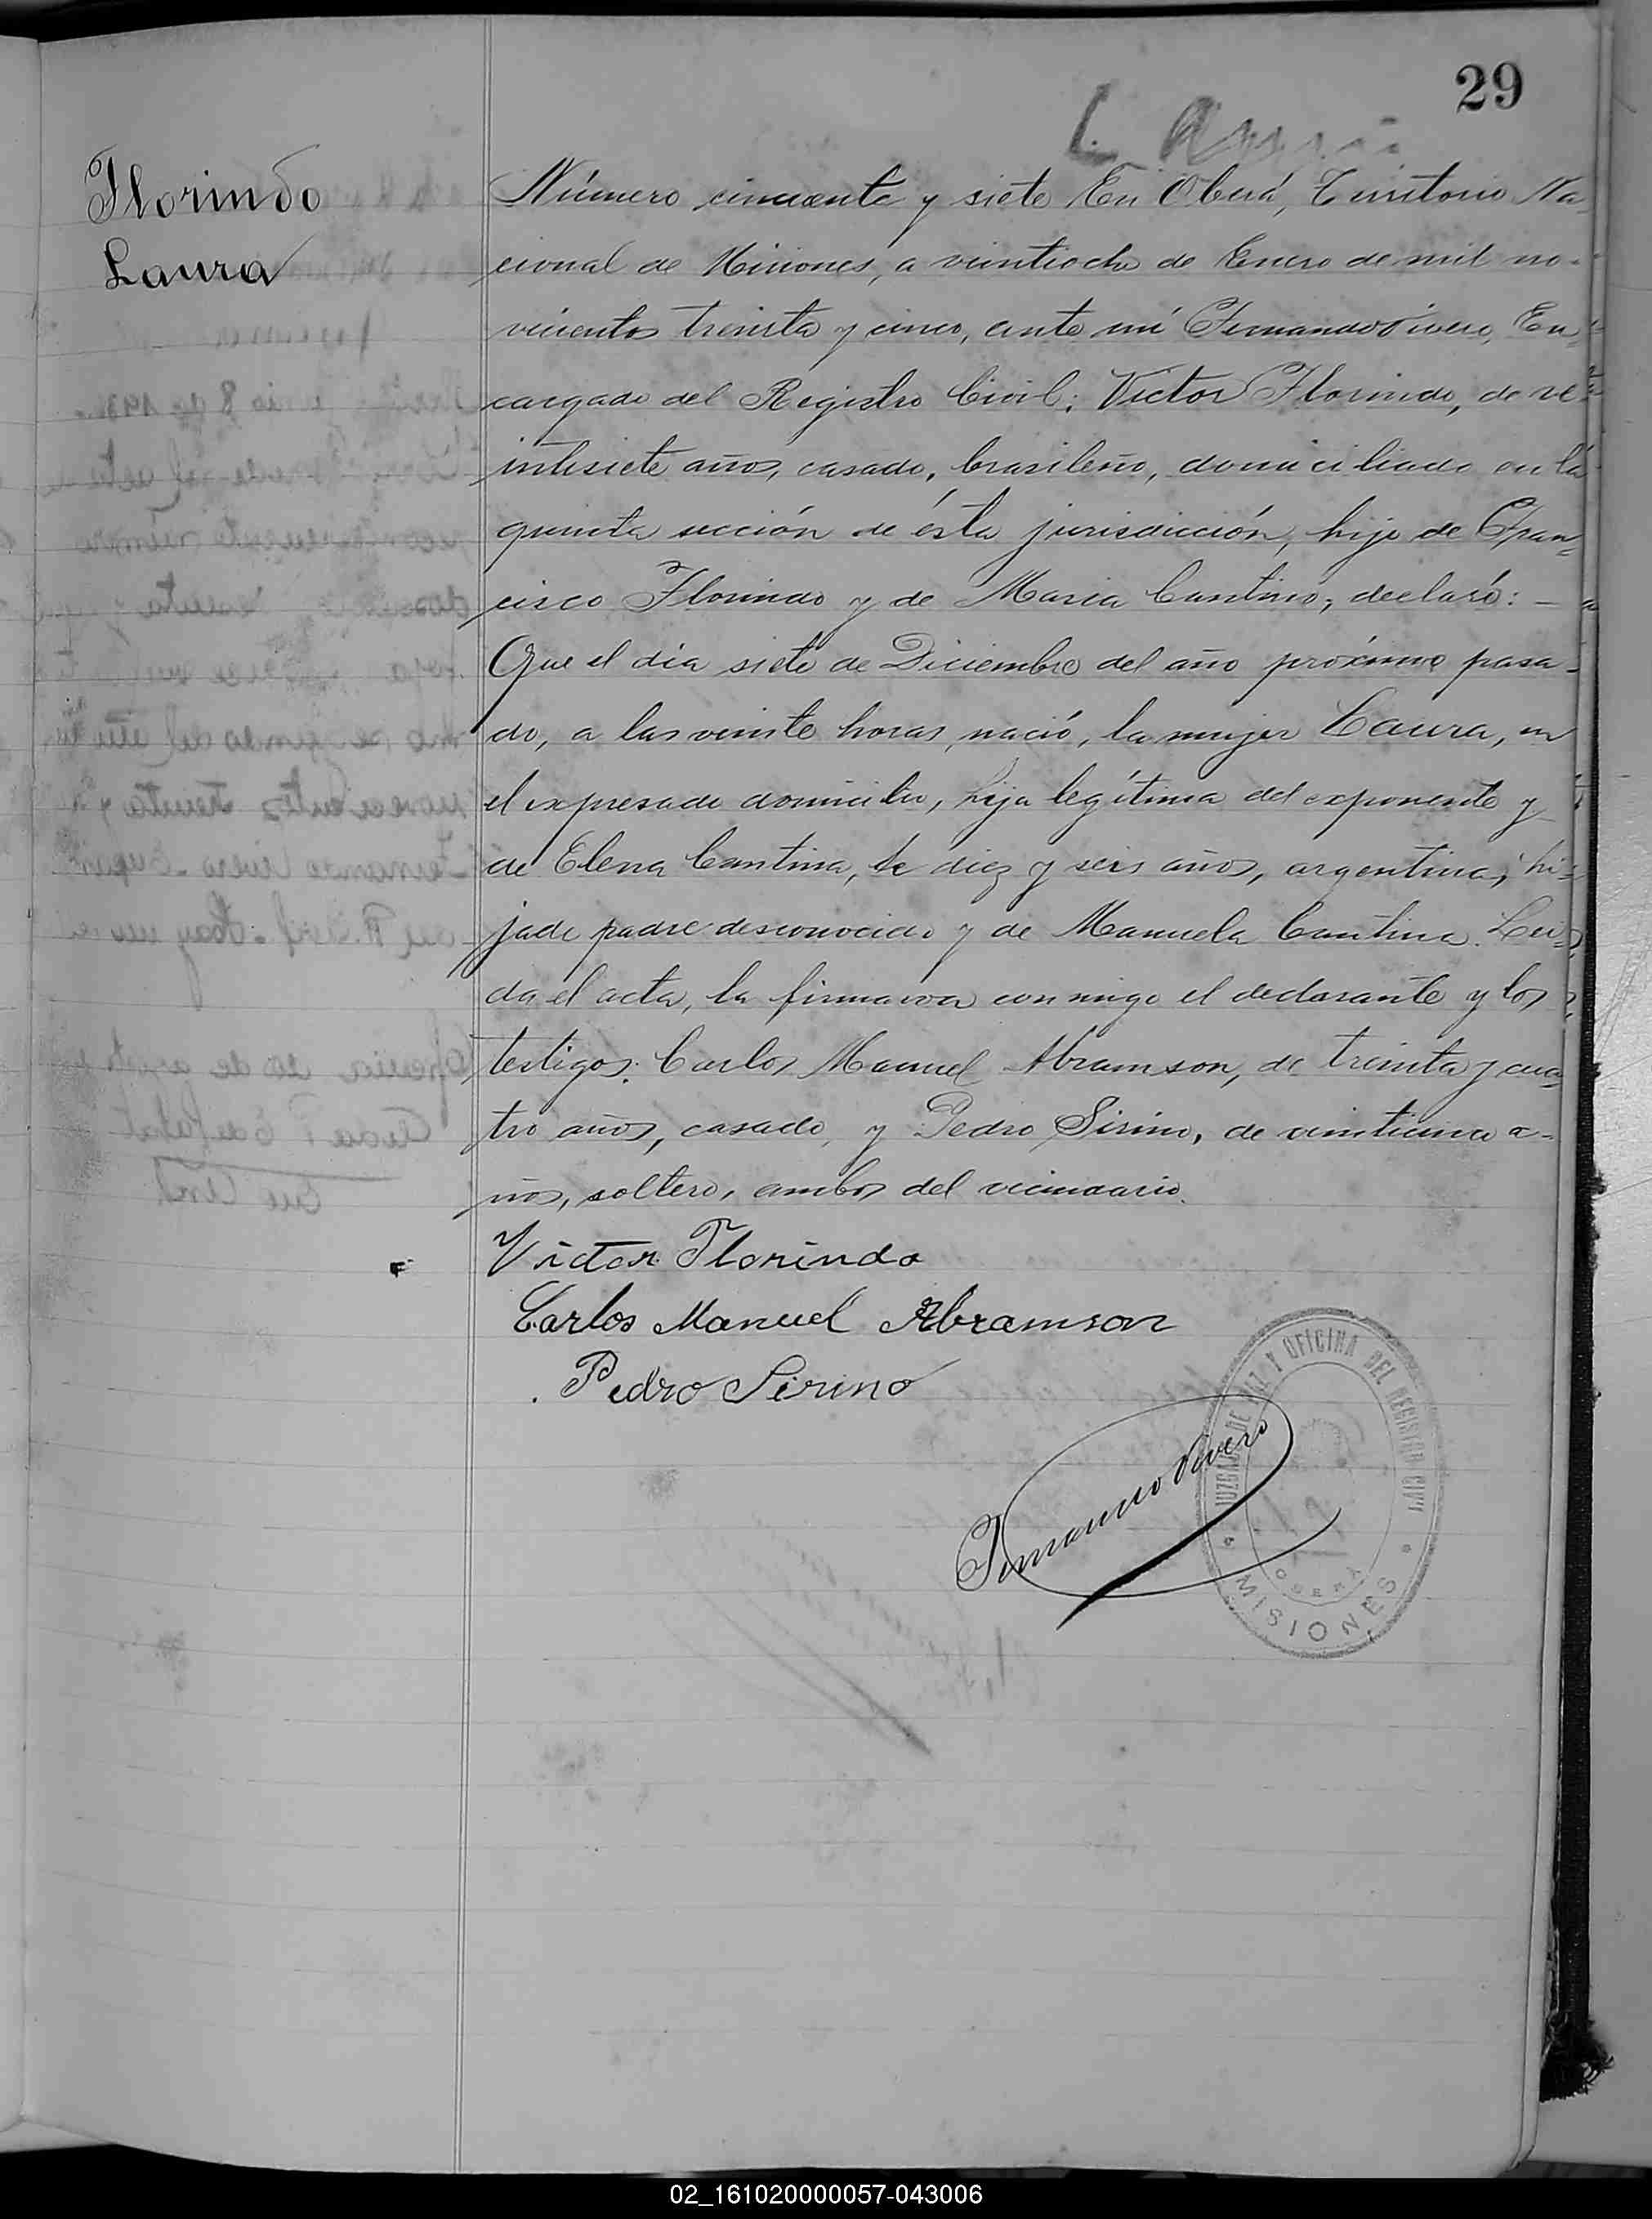 29
Florindo
Laura
Número cincuenta y siete En Oberá, Territorio Na-
cional de Misiones, a veintiocho de Enero de mil no-
vecientos treinta y cinco, ante mí Fernando Vivero, En-
cargado del Registro Civil: Victor Florindo, de ve
intisiete años, casado, brasileño, domiciliado en la
quinta sección de ésta jurisdicción, hijo de Fran-
cisco Florindo y de Maria Cantino, declaró: -
Que el dia siete de Diciembre del año próximo pasa-
do, a las veinte horas, nació, la mujer Laura, en
el expresado domicilio, hija legítima del exponente y
de Elena Cantina, de diez y seis años, argentina, hi-
ja de padre desconocido y de Manuela Cantina. Lei-
da el acta, la firmaron conmigo el declarante y los
testigos: Carlos Manuel Abramson, de treinta y cua-
tro años, casado, y Pedro Sirino, de veinticinco a-
ños, soltero, ambos del vecindario.
Victor Florindo
Carlos Manuel Abramson
Pedro Sirino
Fernando Vivero
JUZGADO DE PAZ Y OFICINA DEL REGISTRO CIVIL
OBERÁ
MISIONES
02_161020000057-043006